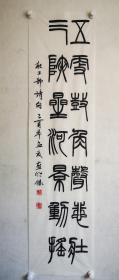 五更鼓角聲悲壯
三峽星河景動搖
杜工部詩句